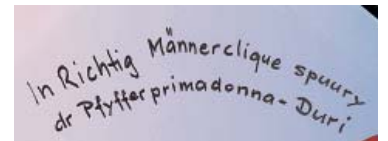 In Richtig Männerclique spuury
dr Pfyfferprimadonna-Duri